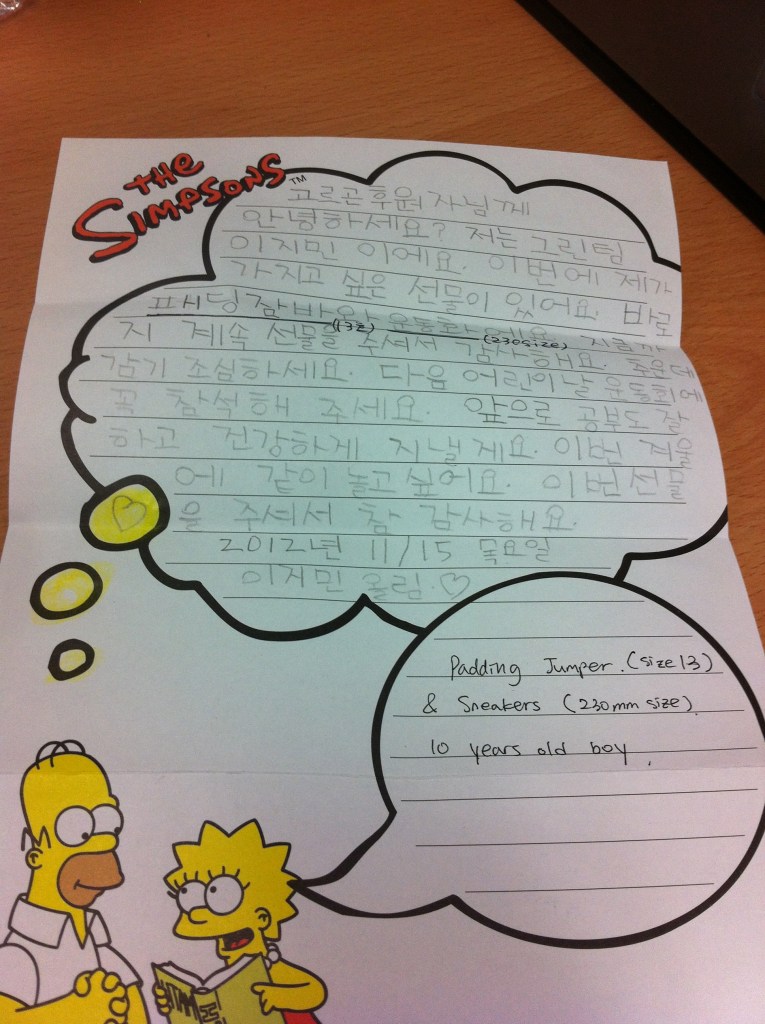 THE
SIMPSONS™
고르곤후원자님께
안녕하세요? 저는 그린팀
이지민 이에요. 이번에 제가
가지고 싶은 선물이 있어요. 바로
프래딩 잠바와 운동화에요. 지금까
(13호) (230size)
지 계속 선물을 주셔서 감사해요. 추운데
감기 조심하세요. 다음 어린이날 운동회에
꼭 참석해 주세요. 앞으로 공부도 잘
하고 건강하게 지낼게요. 이번 겨울
에 같이 놀고싶어요. 이번선물
을 주셔서 참 감사해요.
2012년 11/15 목요일
이지민 올림.♡
Padding Jumper.(size 13)
& Sneakers (230mm size)
10 years old boy.